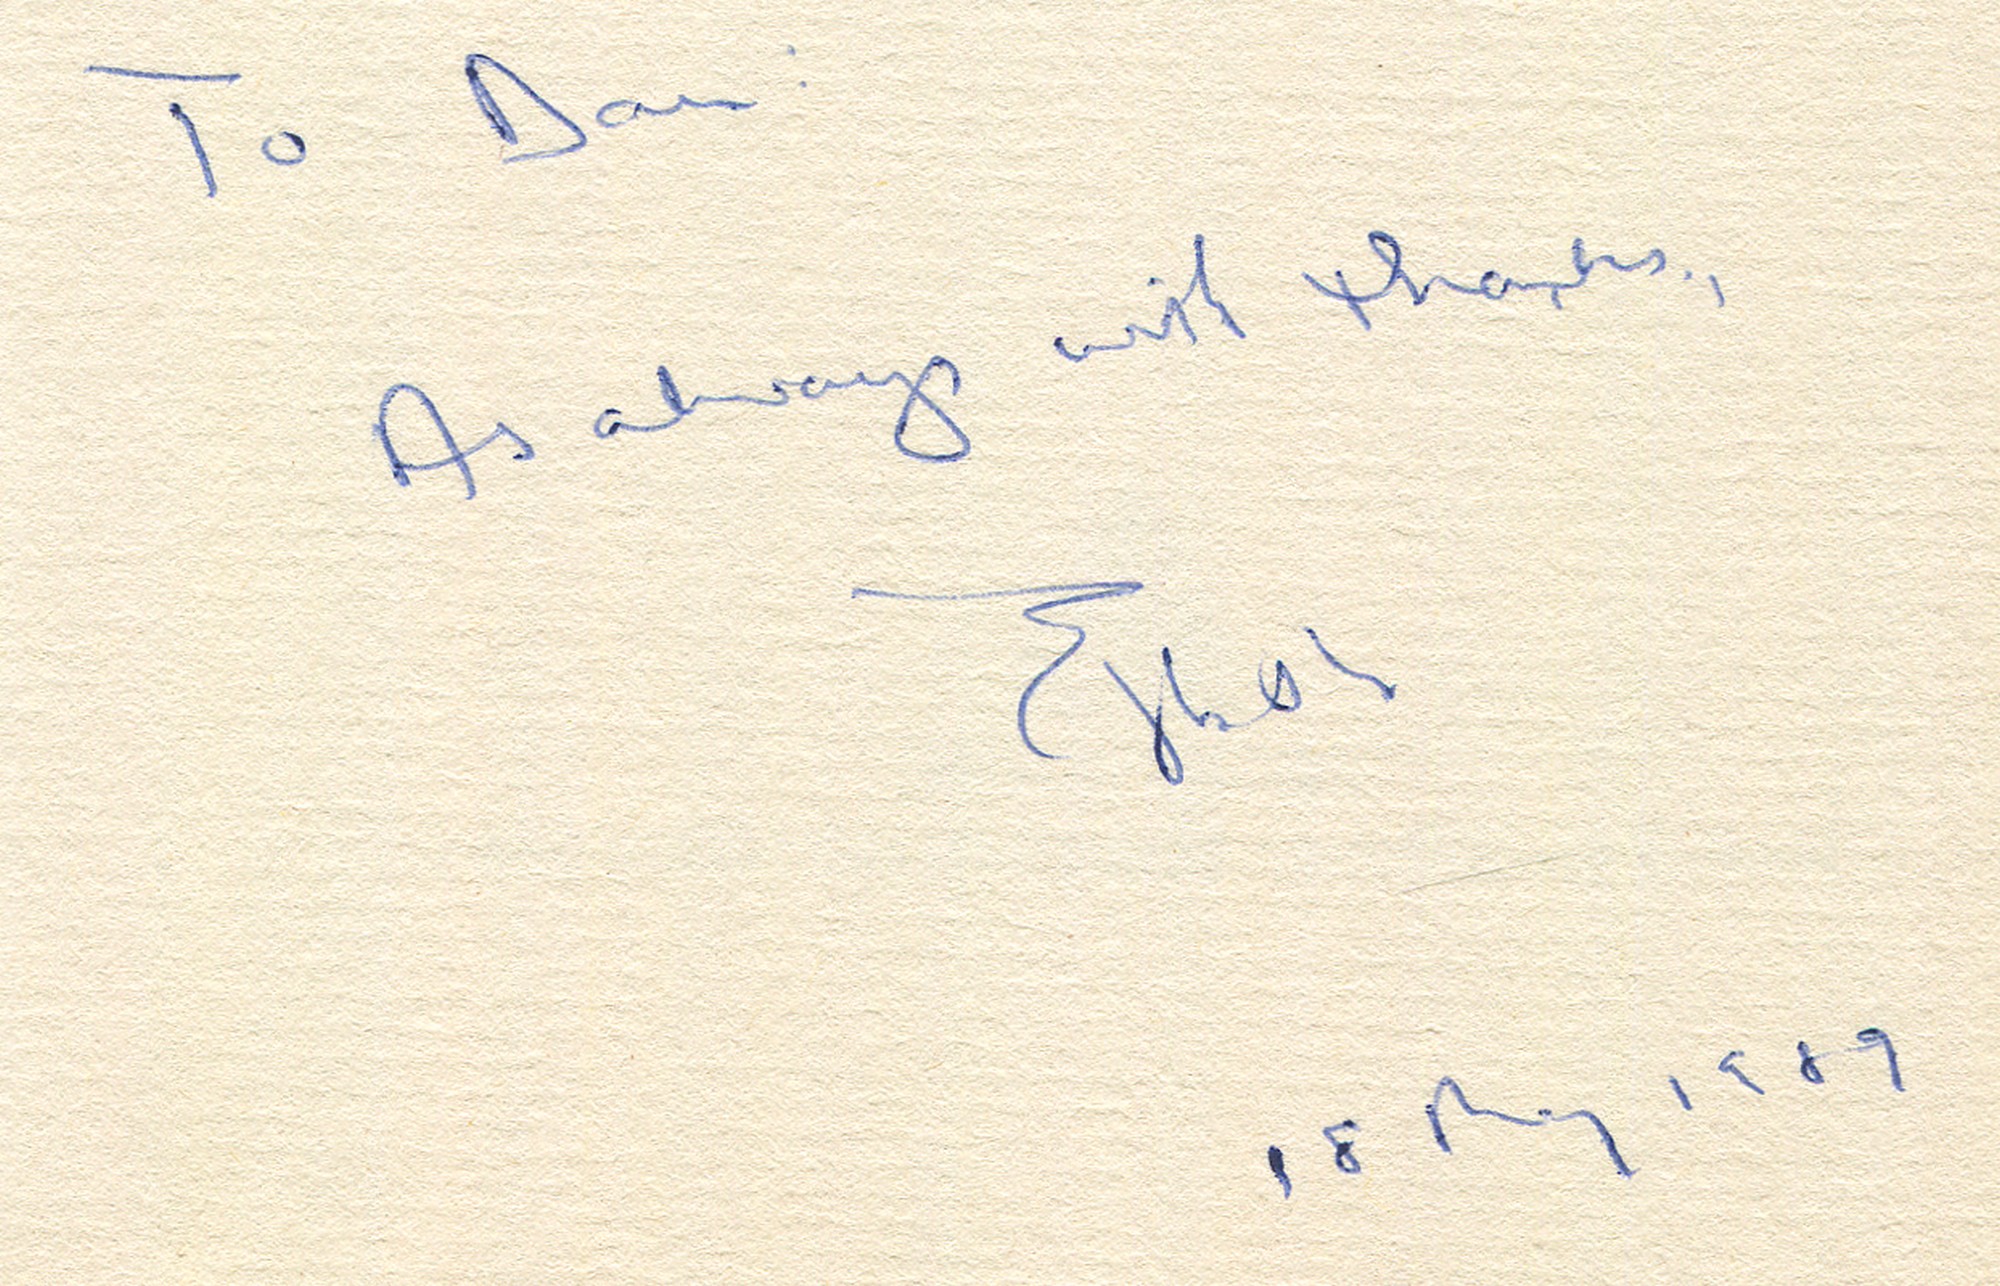 To Dan:
As always with thanks,
18 May 1989